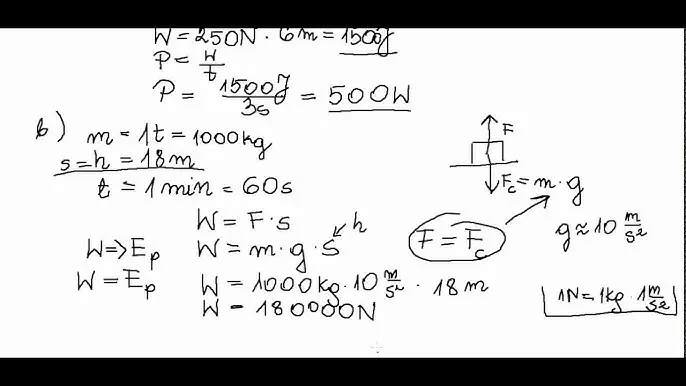 W = 250N · 6m = 1500J
P = W/t
P = 1500J/3s = 500W
b) m = 1t = 1000kg
s = h = 18m
t = 1min = 60s
F
Fc = m · g
g ≈ 10 m/s²
W = F · s
h
W => Ep
W = m · g · s
F = Fc
W = Ep
W = 1000kg · 10 m/s² · 18m
W = 180000N
1N = 1kg · 1 m/s²